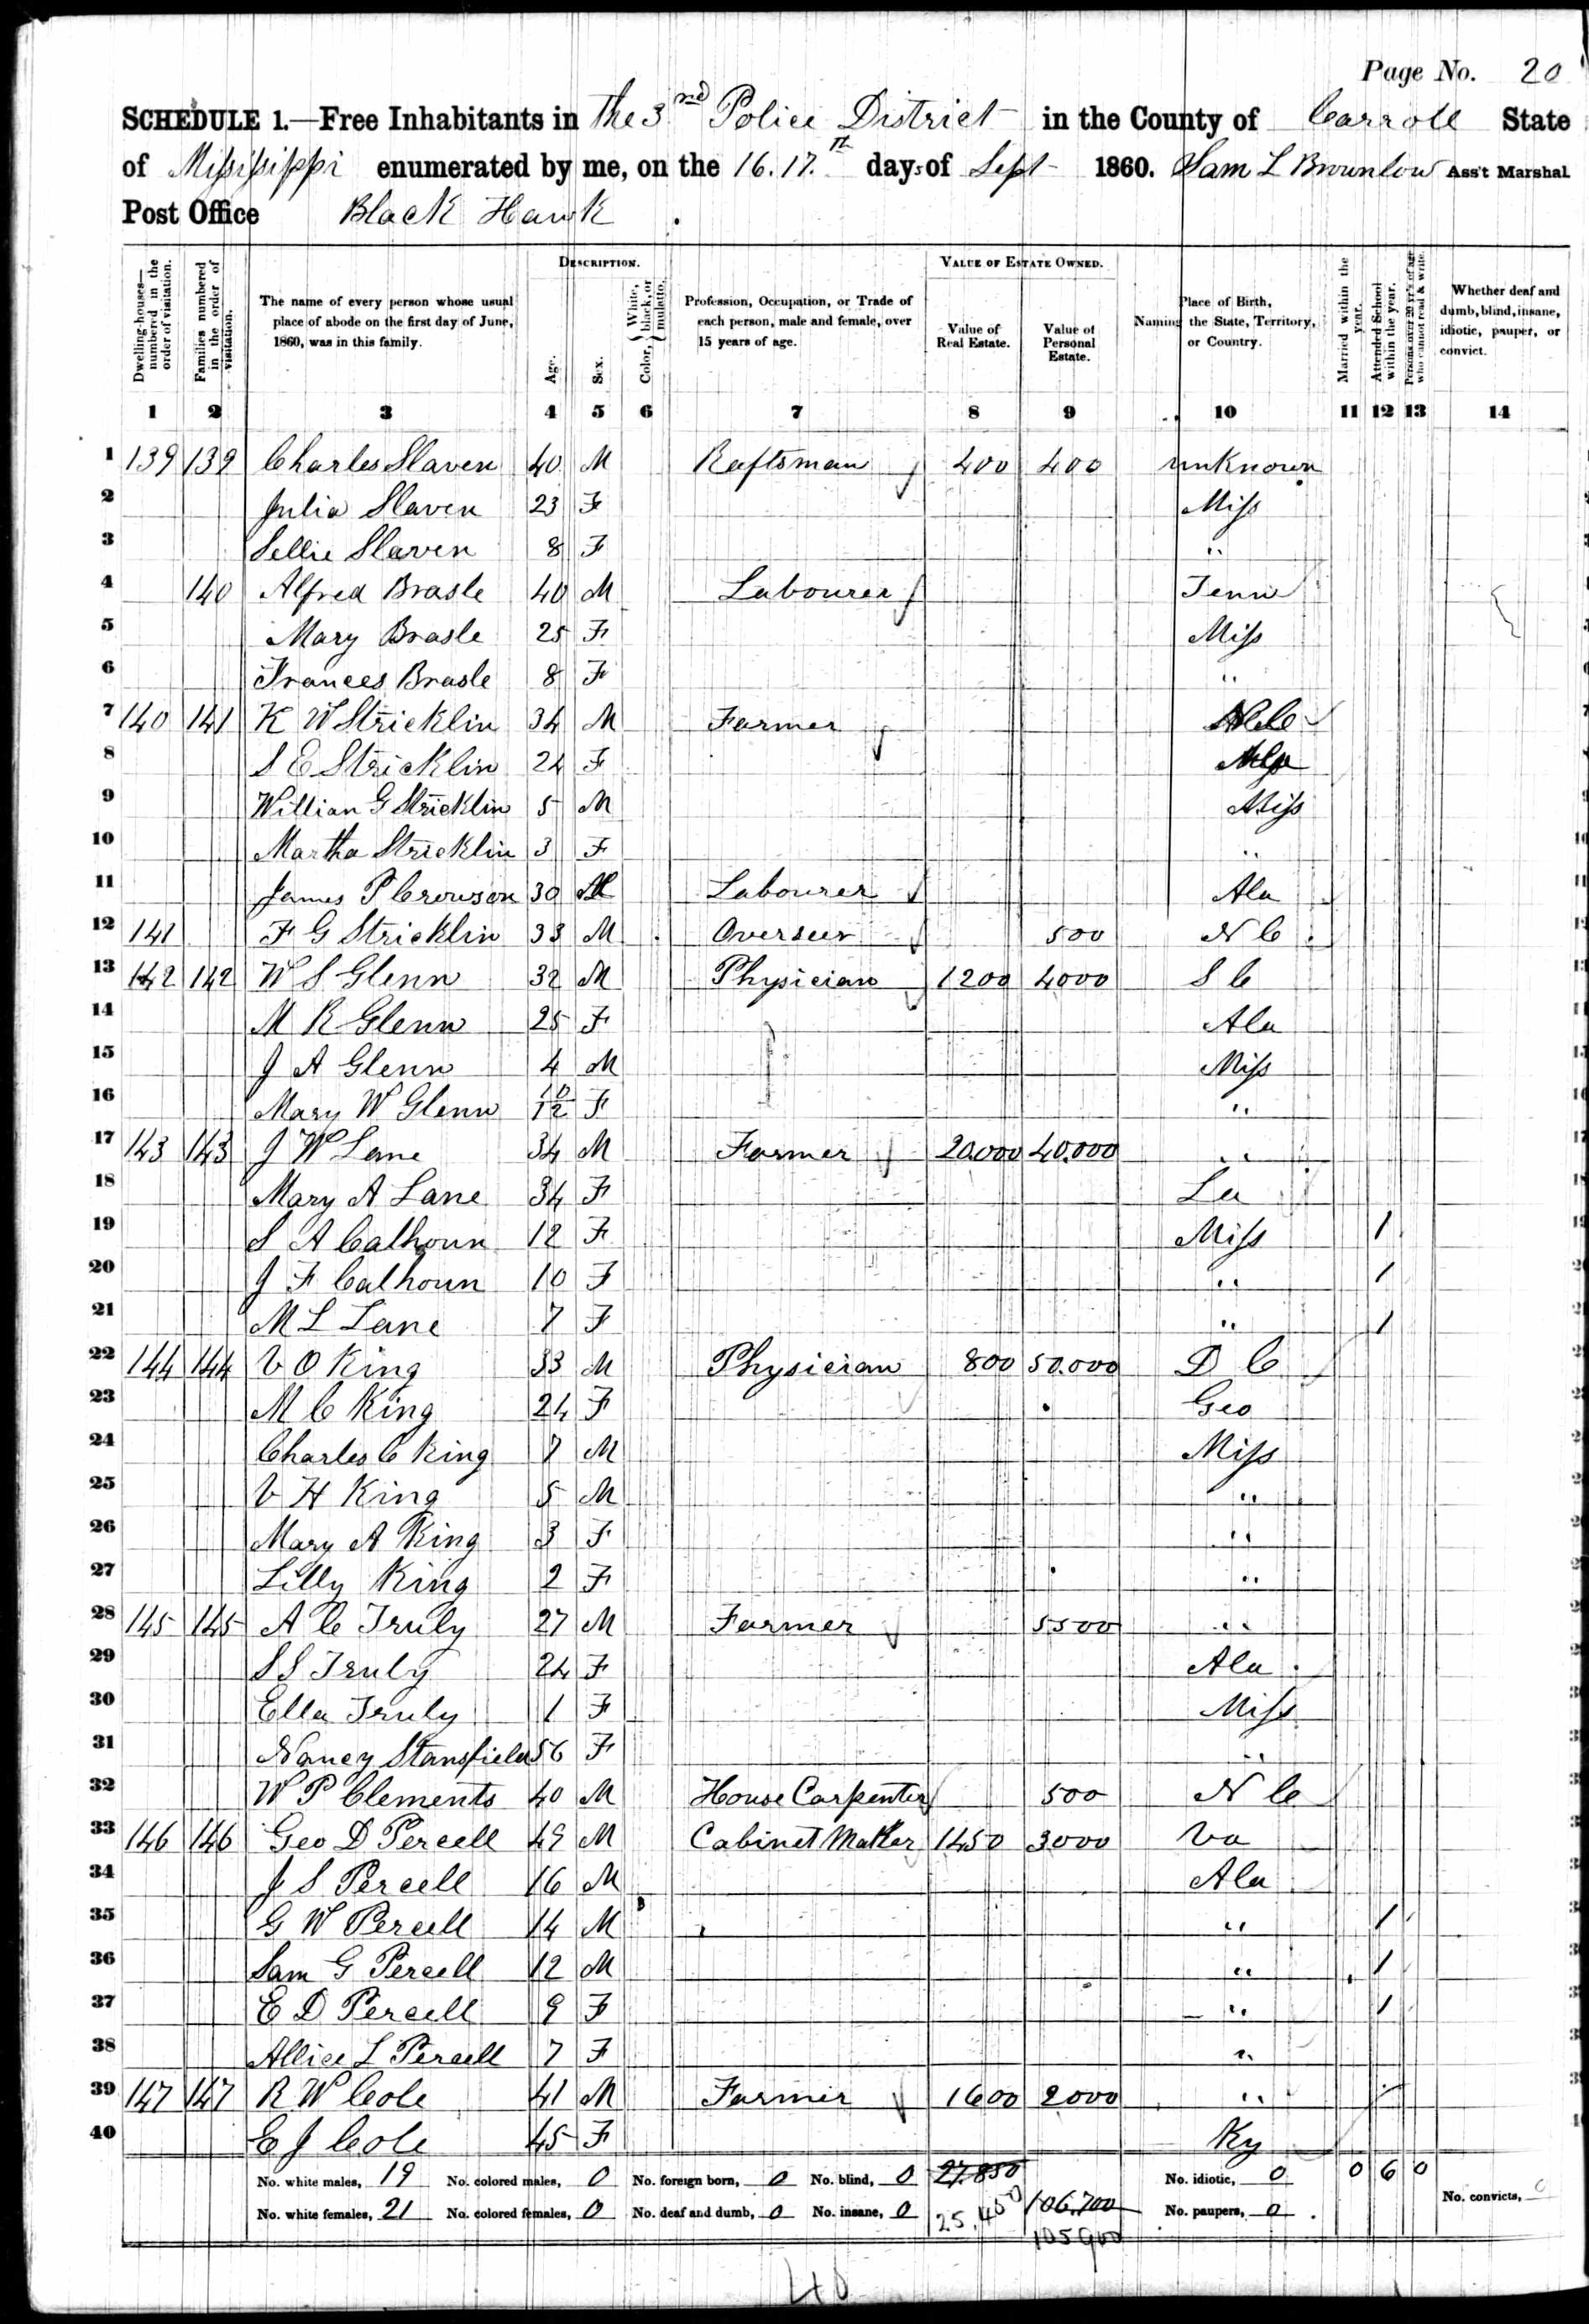 Page No. 20
SCHEDULE 1.—Free Inhabitants in the 3nd Police District in the County of Carroll State
of Missisippi enumerated by me, on the 16.17.th days of Sept 1860. Sam L Brownlow Ass't Marshal.
Post Office Black Hawk.
DESCRIPTION. VALUE OF ESTATE OWNED.
Dwelling-houses—numbered in the order of visitation. Families numbered in the order of visitation. The name of every person whose usual place of abode on the first day of June, 1860, was in this family. Age. Sex. Color, { White, black, or mulatto. Profession, Occupation, or Trade of each person, male and female, over 15 years of age. Value of Real Estate. Value of Personal Estate. Place of Birth, Naming the State, Territory, or Country. Married within the year. Attended School within the year. Persons over 20 yr's of age who cannot read & write. Whether deaf and dumb, blind, insane, idiotic, pauper, or convict.
1 2 3 4 5 6 7 8 9 10 11 12 13 14
1 139 139 Charles Slaven 40 M Raftsman 400 400 unknown
2 Julia Slaven 23 F Miss
3 Sellie Slaven 8 F "
4 140 Alfred Brasle 40 M Labourer Tenn
5 Mary Brasle 25 F Miss
6 Frances Brasle 8 F "
7 140 141 K W Stricklin 34 M Farmer
8 S E Stricklin 24 F
9 Willian G Stricklin 5 M Miss
10 Martha Stricklin 3 F "
11 James P Crowson 30 M Labourer Ala
12 141 F G Stricklin 33 M Overseer 500 N C
13 142 142 W S Glenn 32 M Physician 1200 4000 S C
14 M R Glenn 25 F Ala
15 J A Glenn 4 M Miss
16 Mary W Glenn 10/12 F "
17 143 143 J W Lane 34 M Farmer 20.000 40.000 "
18 Mary A Lane 34 F La
19 S A Calhoun 12 F Miss 1
20 J F Calhoun 10 F " 1
21 M L Lane 7 F " 1
22 144 144 V O King 33 M Physician 800 50.000 D C
23 M C King 24 F Geo
24 Charles C King 7 M Miss
25 V H King 5 M "
26 Mary A King 3 F "
27 Lilly King 2 F "
28 145 145 A C Truly 27 M Farmer 5500 "
29 S S Truly 24 F Ala
30 Ella Truly 1 F Miss
31 Nancy Stansfield 56 F "
32 W P Clements 40 M House Carpenter 500 N C
33 146 146 Geo D Percell 49 M Cabinet Maker 1450 3000 Va
34 J S Percell 16 M Ala
35 G W Percell 14 M " 1
36 Sam G Percell 12 M " 1
37 E D Percell 9 F " 1
38 Allice L Percell 7 F "
39 147 147 R W Cole 41 M Farmer 1600 2000 "
40 E J Cole 45 F Ky
No. white males, 19 No. colored males, 0 No. foreign born, 0 No. blind, 0 27.850 No. idiotic, 0 0 6 0
No. white females, 21 No. colored females, 0 No. deaf and dumb, 0 No. insane, 0 25,450 106,700 No. paupers, 0 No. convicts, 0
105900
40